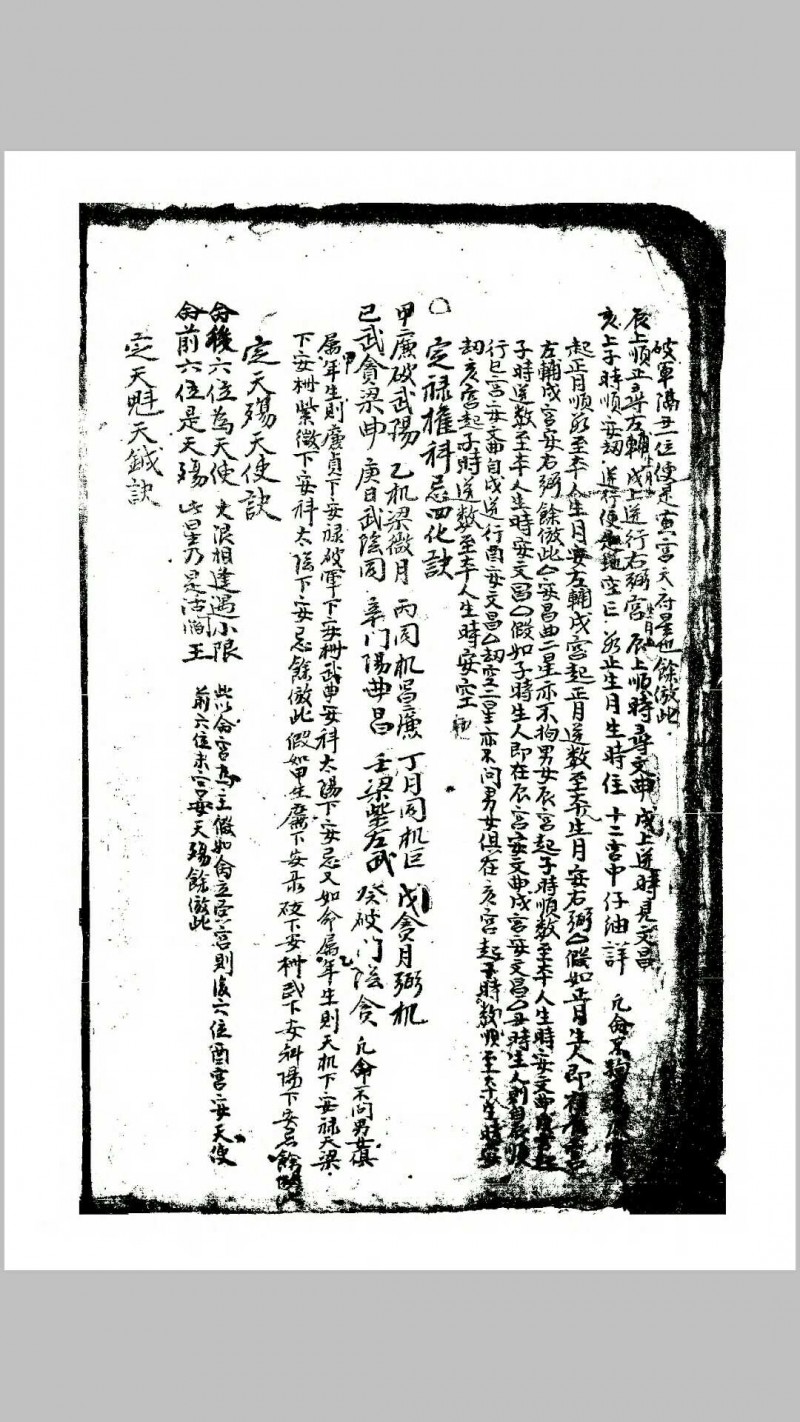 破軍隔丑位便是寅宮天府星也餘倣此
辰上順正尋左輔戌上逆行右弼宮辰上順時尋文曲戌上逆時見文昌
亥上子時順安刼逆行便是空亡為止生月生時住十二宮中仔油詳 凢侖不拘
起正月順數至本人生月安左輔戌宮起正月逆數至本生月安右弼假如正月生人即在辰宮
左輔戌宮安右弼餘倣此安昌曲二星亦不拘男女辰宮起子時順數至本人生時安文曲戌宮起
子時逆数至本人生時安文昌假如子時生人即在辰宮安文曲戌宮安文昌丑時生人則自辰順
行巳宮安文曲自戌逆行酉安文昌刼空二星亦不問男女俱在亥宮起子時数順至本生時安
刼亥宮起子時逆数至本人生時安空
○定禄權科忌四化訣
甲廉破武陽 乙机梁微月 丙同机昌廉 丁月同机巨 戊貪月弼机
己武貪梁曲 庚日武陰同 辛门陽曲昌 壬梁紫左武 癸破门陰貪 凢侖不問男女俱
属甲年生則廉貞下安禄破軍下安权武曲安科太陽下安忌又如命属乙年生則天机下安禄天梁
下安权紫微下安科太陰下安忌餘倣此假如甲生廉下安录破下安权武下安科陽下安忌餘倣此
定天殤天使訣
侖後六位為天使 大限相逢遇小限
侖前六位是天殤 此星乃是活阎王
此以侖宮為主假如侖立宮則後六位酉宮安天使
前六位宮安天殤餘倣此
定天魁天鉞訣